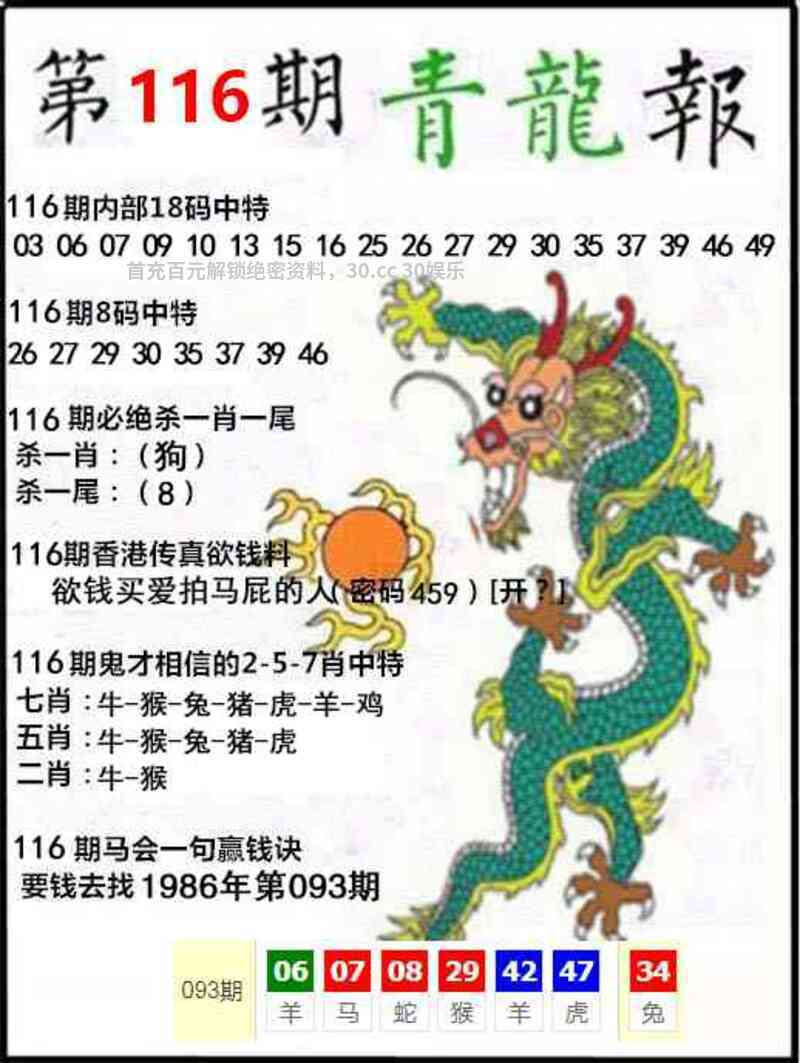 第116期青龍報
116期内部18码中特
03 06 07 09 10 13 15 16 25 26 27 29 30 35 37 39 46 49
首充百元解锁绝密资料，30.cc 30娱乐
116期8码中特
26 27 29 30 35 37 39 46
116期必绝杀一肖一尾
杀一肖：（狗）
杀一尾：（8）
116期香港传真欲钱料
欲钱买爱拍马屁的人（密码459）[开？]
116期鬼才相信的2-5-7肖中特
七肖：牛-猴-兔-猪-虎-羊-鸡
五肖：牛-猴-兔-猪-虎
二肖：牛-猴
116期马会一句赢钱诀
要钱去找1986年第093期
093期 06 07 08 29 42 47 34
羊 马 蛇 猴 羊 虎 兔